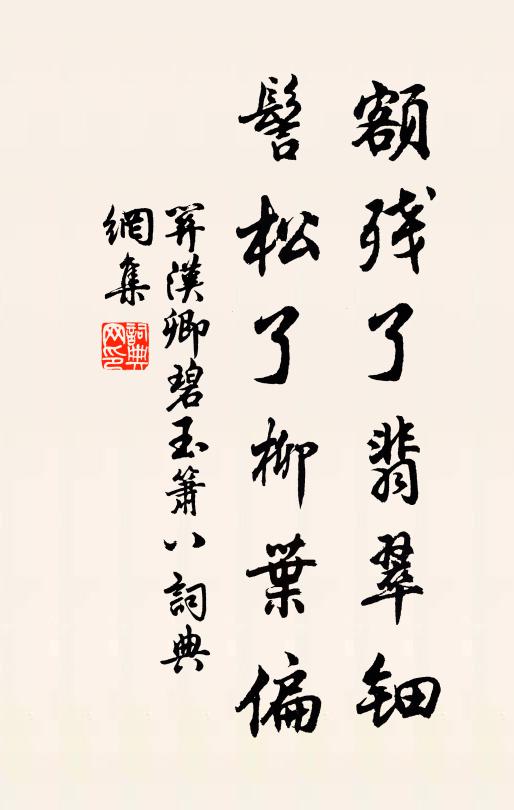 額殘了翡翠鈿
髻松了柳葉偏
關漢卿碧玉簫八詞典
網集
詞典網印